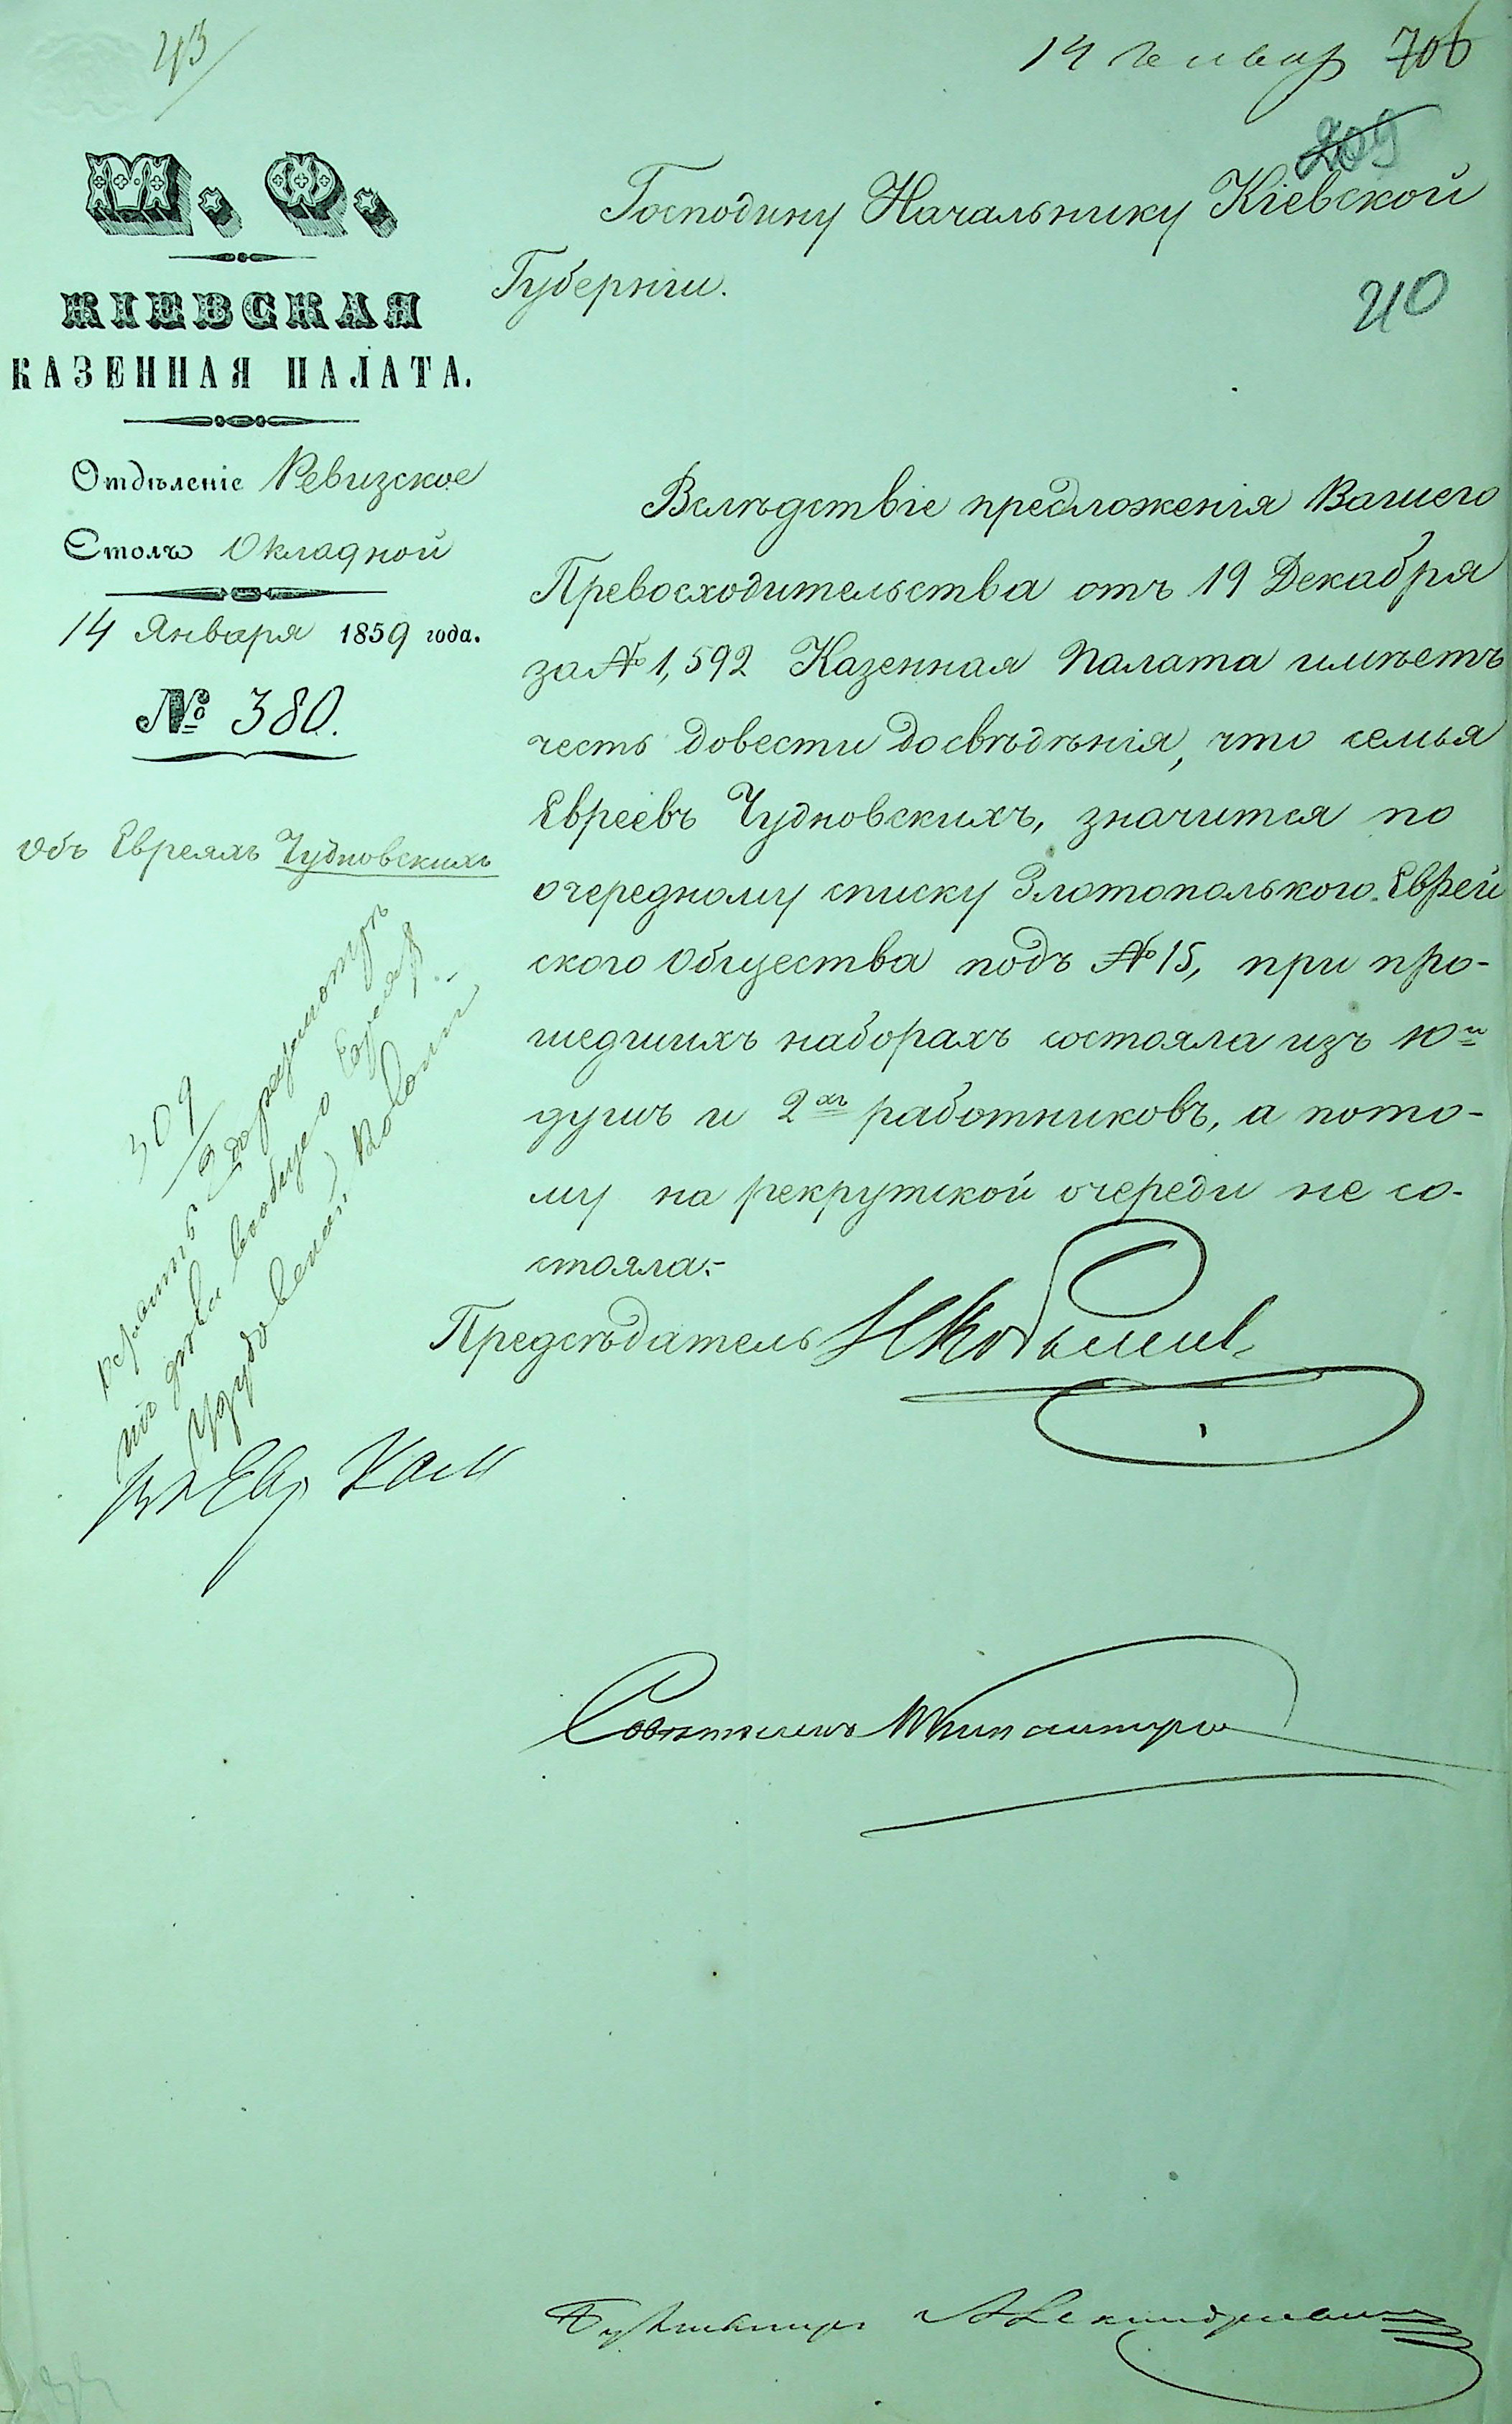 43
14 Генвар 706
209
М. Ф.
КІЕВСКАЯ
КАЗЕННАЯ ПАЛАТА.
Отдѣленіе Ревизское
Столъ Окладной
14 Января 1859 года.
№ 380.
Объ Евреяхъ Чудновскихъ
Господину Начальнику Кіевской
Губерніи.
210
Вслѣдствіе предложенія Вашего
Превосходительства отъ 19 Декабря
за № 1,592 Казенная Палата имѣетъ
честь довести до свѣдѣнія, что семья
Евреевъ Чудновскихъ, значится по
очередному списку Златопольского Еврей
ского Общества подъ № 15, при про-
шедшихъ наборахъ состояла изъ 10и
душъ и 2хъ работниковъ, а пото-
му на рекрутской очереди не со-
стояла.-
Предсѣдатель
309
вообще о
Совѣтникъ
Бухгалтеръ